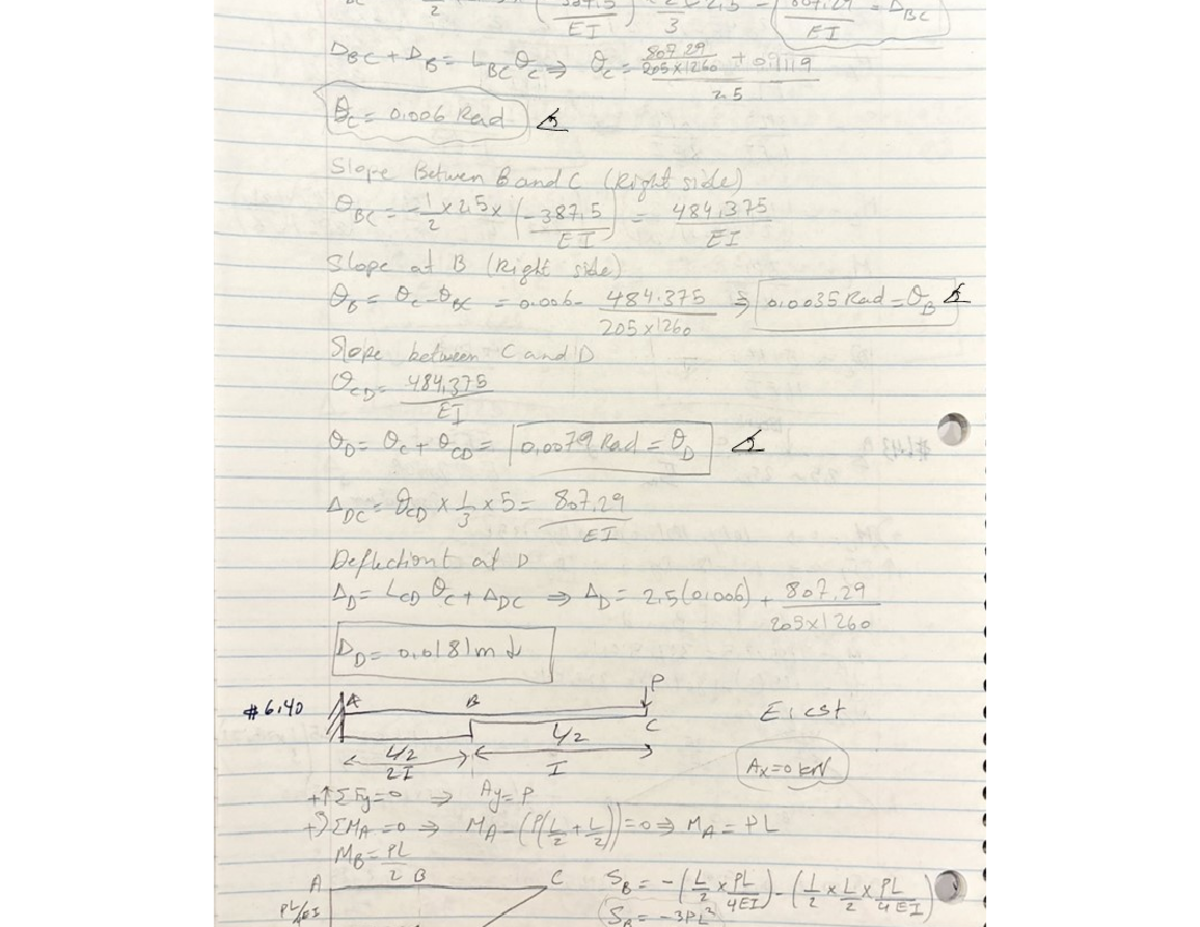 2 3 EI = ΔBC
EI
ΔBC + ΔB = LBC θC ⇒ θC = 807.29 / 205x1260 + 0.1119 / 2.5
θC = 0.006 Rad
Slope Betwen B and C (Right side)
θBC = -1/2 x 2.5 x (-387.5/EI) = 484.375/EI
Slope at B (Right side)
θB = θC - θBC = 0.006 - 484.375/205x1260 ⇒ 0.0035 Rad = θB
Slope between C and D
θCD = 484.375/EI
θD = θC + θCD = 0.0079 Rad = θD
ΔDC = θCD x 1/3 x 5 = 807.29/EI
Deflectiont at D
ΔD = LCD θC + ΔDC ⇒ ΔD = 2.5(0.006) + 807.29/205x1260
ΔD = 0.0181m ↓
P
#6.40 A B C E: cst
L/2 L/2
2I I Ax=0 kN
+↑ΣFy=0 ⇒ Ay=P
+ΣMA=0 ⇒ MA-(P(L/2+L/2))=0 ⇒ MA=PL
MB=PL/2
A B C SB = -(L/2 x PL/4EI) - (1/2 x L/2 x PL/4EI)
SB = -3PL²